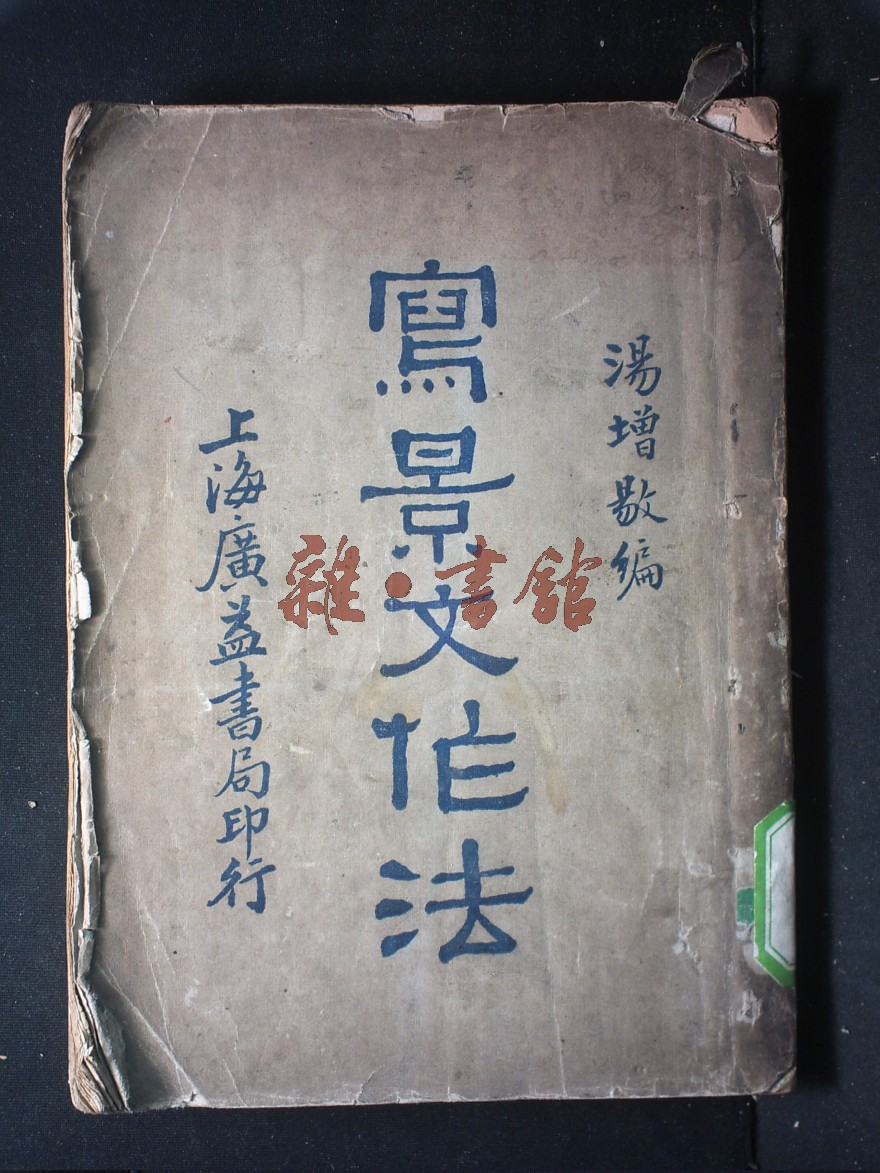 湯增敭編
寫景文作法
上海廣益書局印行
雜·書館